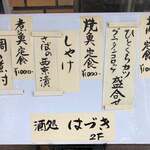 定食
¥1000-
ひとくちカツ
盛合せ
焼魚定食
¥1000-
しゃけ
さばの西京漬
煮魚定食
¥1000-
酒処 はづき
2F